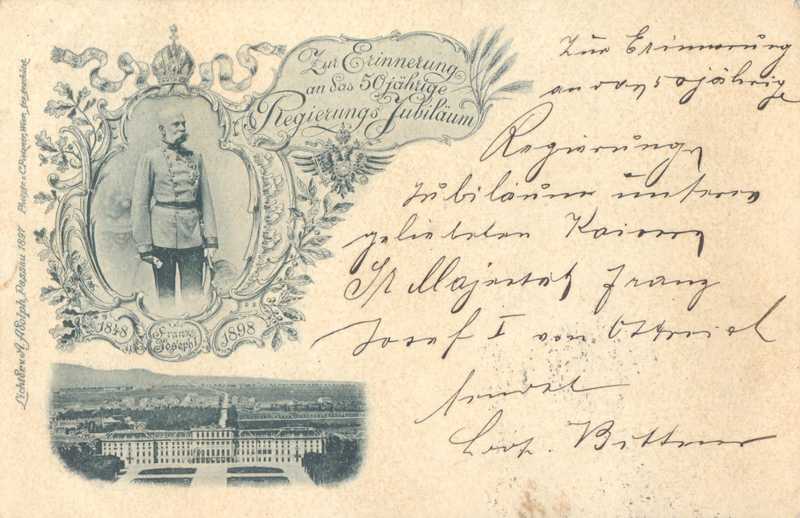 Zur Erinnerung
an das 50jährige
Regierungs Jubiläum
1848
Franz
Joseph I
1898
Lichtdr. v. A. Adolph, Passau 1897
Photogr. v. C. Pietzner, Wien
Zur Erinnerung
an das 50jährige
Regierungs
Jubiläum unseres
geliebten Kaisers
Sr Majestät Franz
Josef I von Östreich
sendet
Leop. Bittner